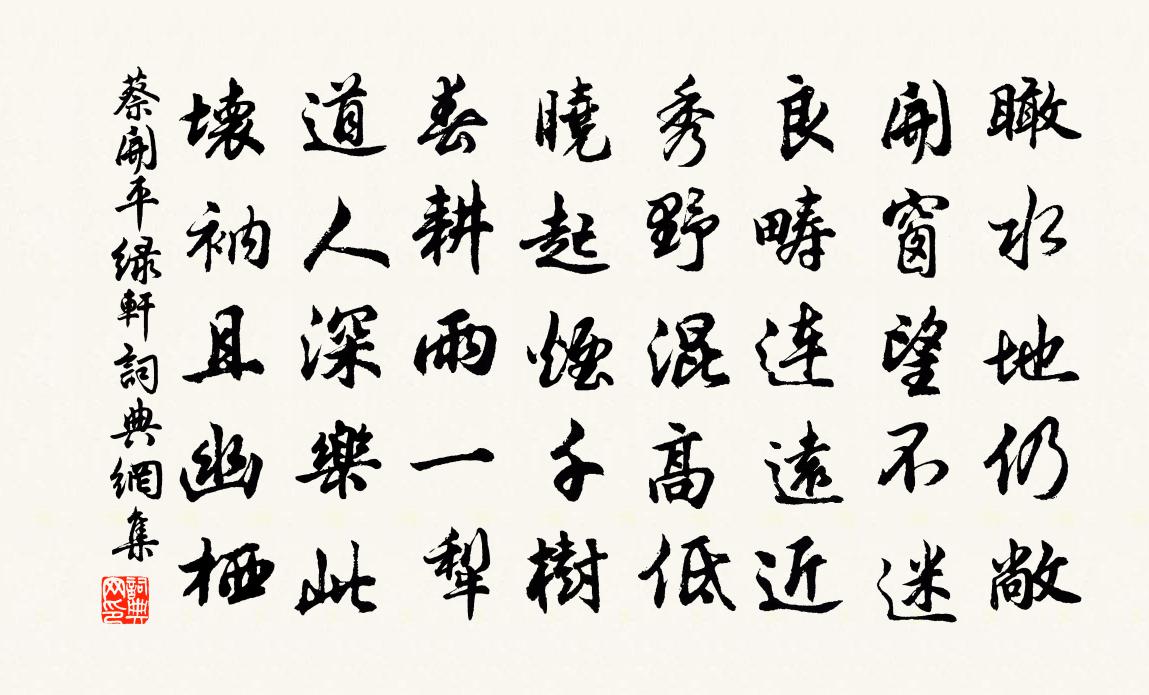 瞰水地仍敞
開窗望不迷
良疇連遠近
秀野混高低
曉起煙千樹
春耕雨一犁
道人深樂此
壞衲且幽栖
蔡開平緑軒詞典網集
詞典網印